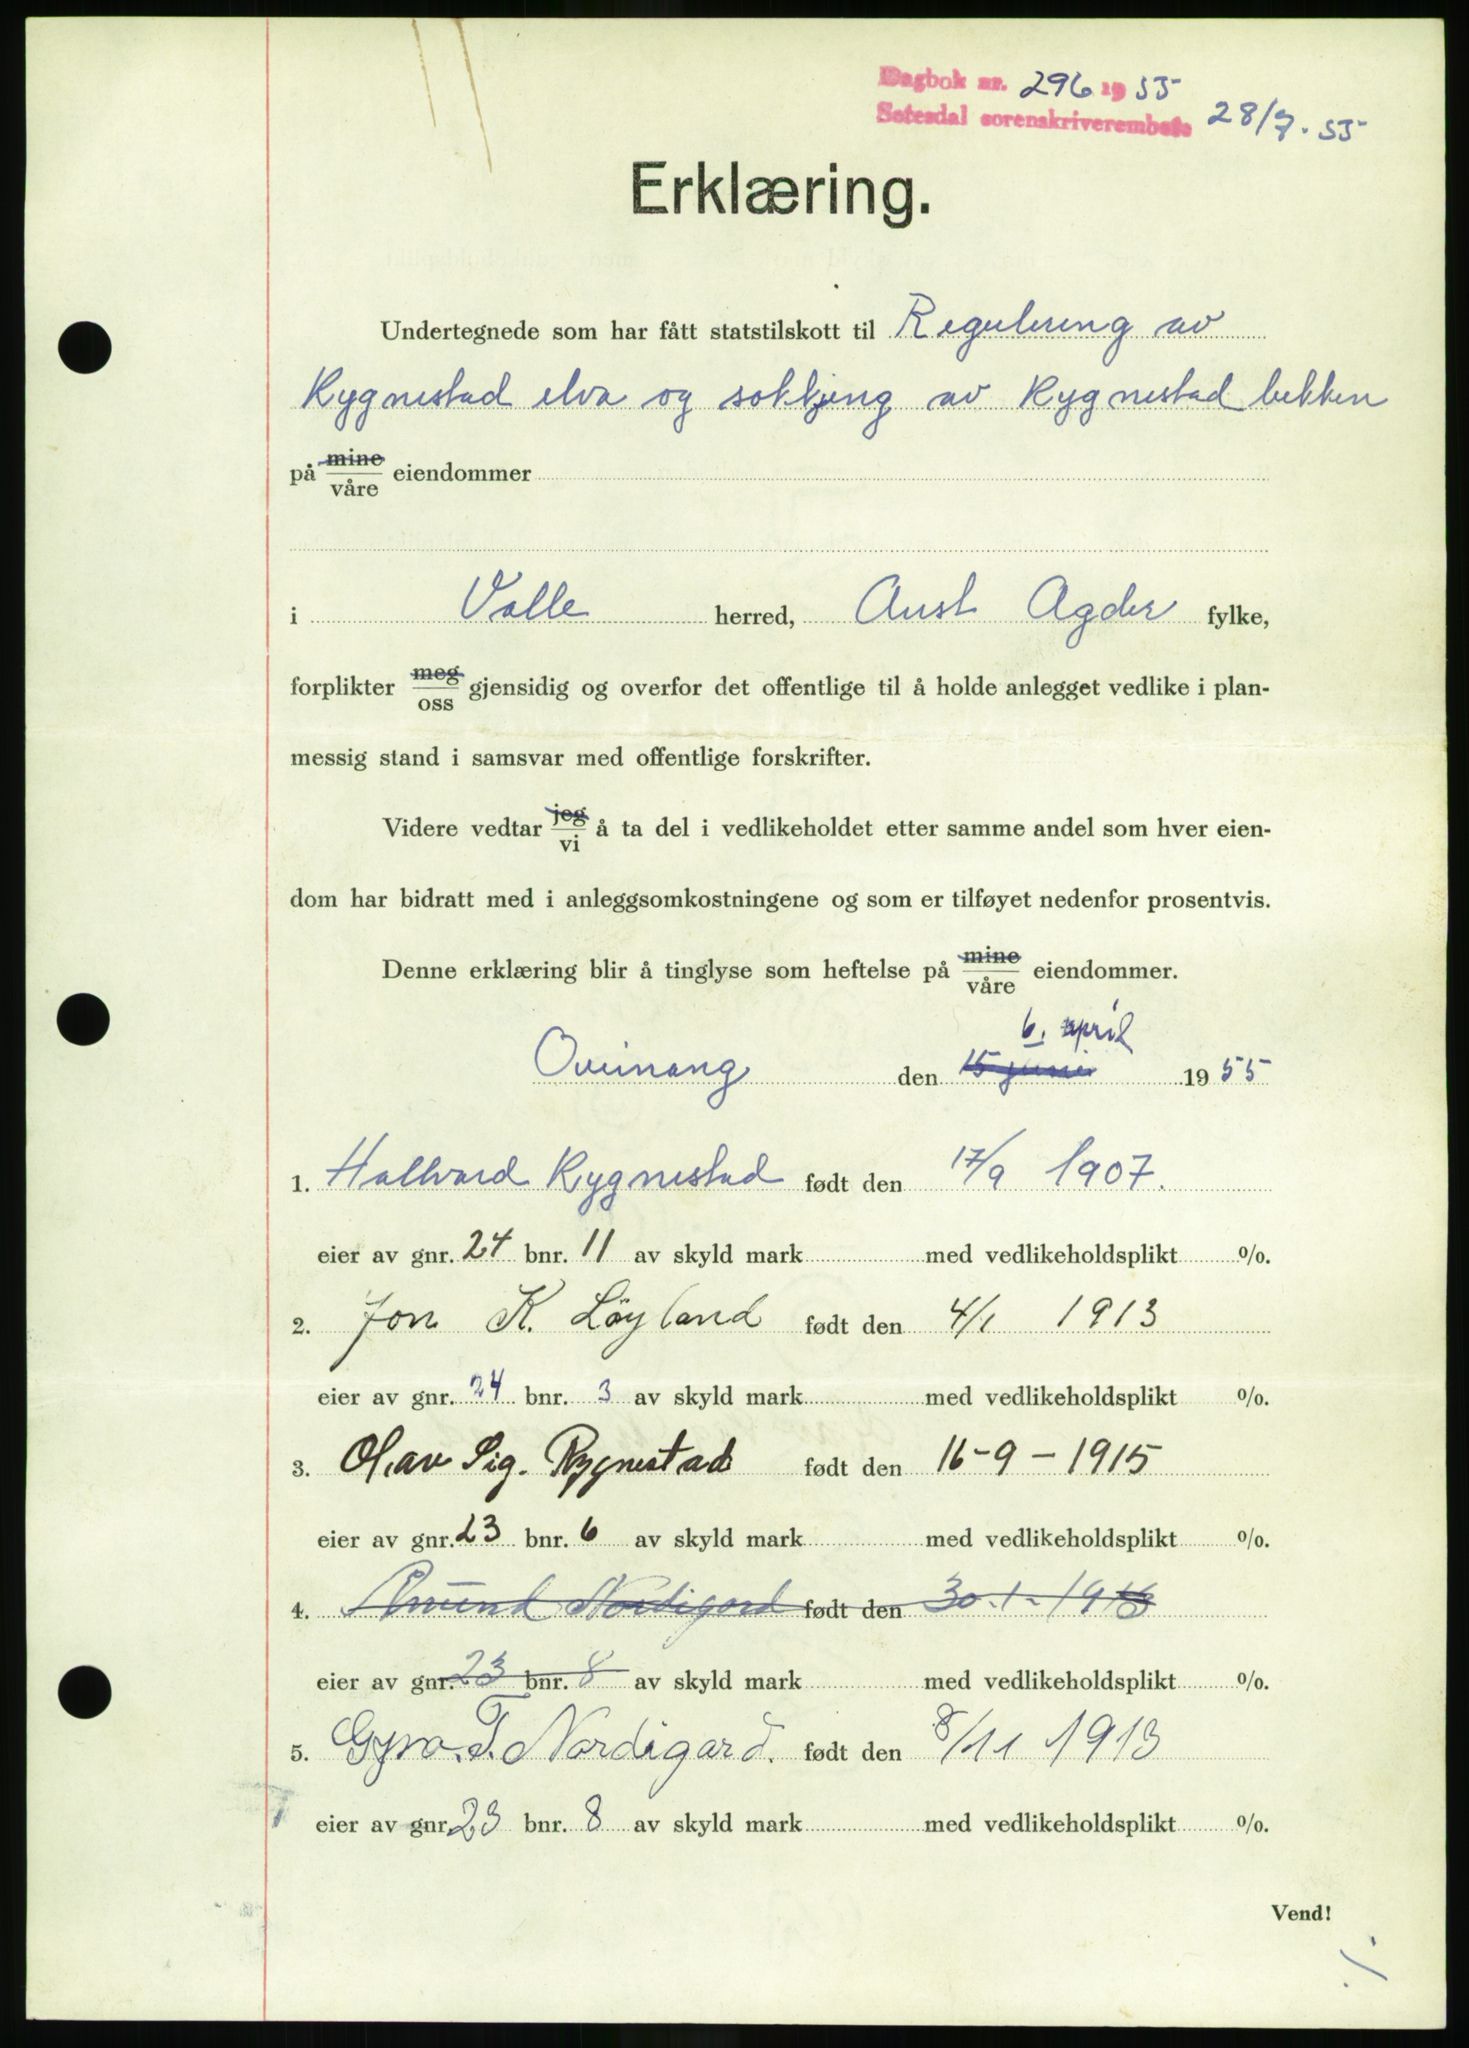 Dagbok nr. 296 1955
Setesdal sorenskriverembete 28/7. 55
Erklæring.
Undertegnede som har fått statstilskott til Regulering av
Rygnestad elva og søkkjing av Rygnestad bekken
på mine/våre eiendommer
i Valle herred, Aust Agder fylke,
forplikter meg/oss gjensidig og overfor det offentlige til å holde anlegget vedlike i plan-
messig stand i samsvar med offentlige forskrifter.
Videre vedtar jeg/vi å ta del i vedlikeholdet etter samme andel som hver eien-
dom har bidratt med i anleggsomkostningene og som er tilføyet nedenfor prosentvis.
Denne erklæring blir å tinglyse som heftelse på mine/våre eiendommer.
6. april
den 15 juni 1955
1. Hallvard Rygnestad født den 17/9 1907.
eier av gnr. 24 bnr. 11 av skyld mark med vedlikeholdsplikt %.
2. Jon K. Løyland født den 4/1 1913
eier av gnr. 24 bnr. 3 av skyld mark med vedlikeholdsplikt %.
3. Olav Sig. Rygnestad født den 16-9-1915
eier av gnr. 23 bnr. 6 av skyld mark med vedlikeholdsplikt %.
4. Amund Nordigard født den 30.1.
eier av gnr. 23 bnr. 8 av skyld mark med vedlikeholdsplikt %.
5. Gyro. T. Nordigard. født den 8/11 1913
eier av gnr. 23 bnr. 8 av skyld mark med vedlikeholdsplikt %.
Vend!
./.